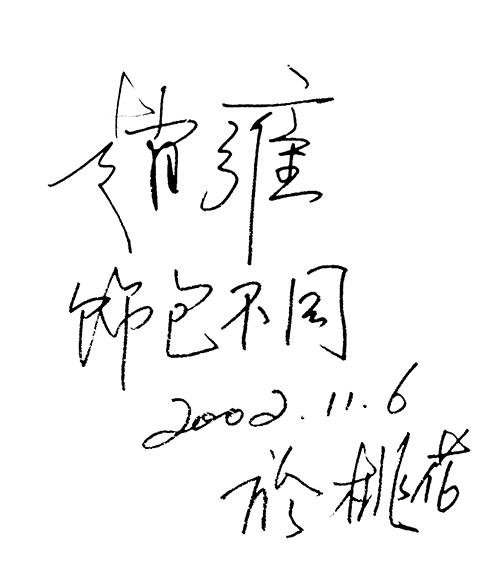 赵雍
饰包不同
2002.11.6
於桃花